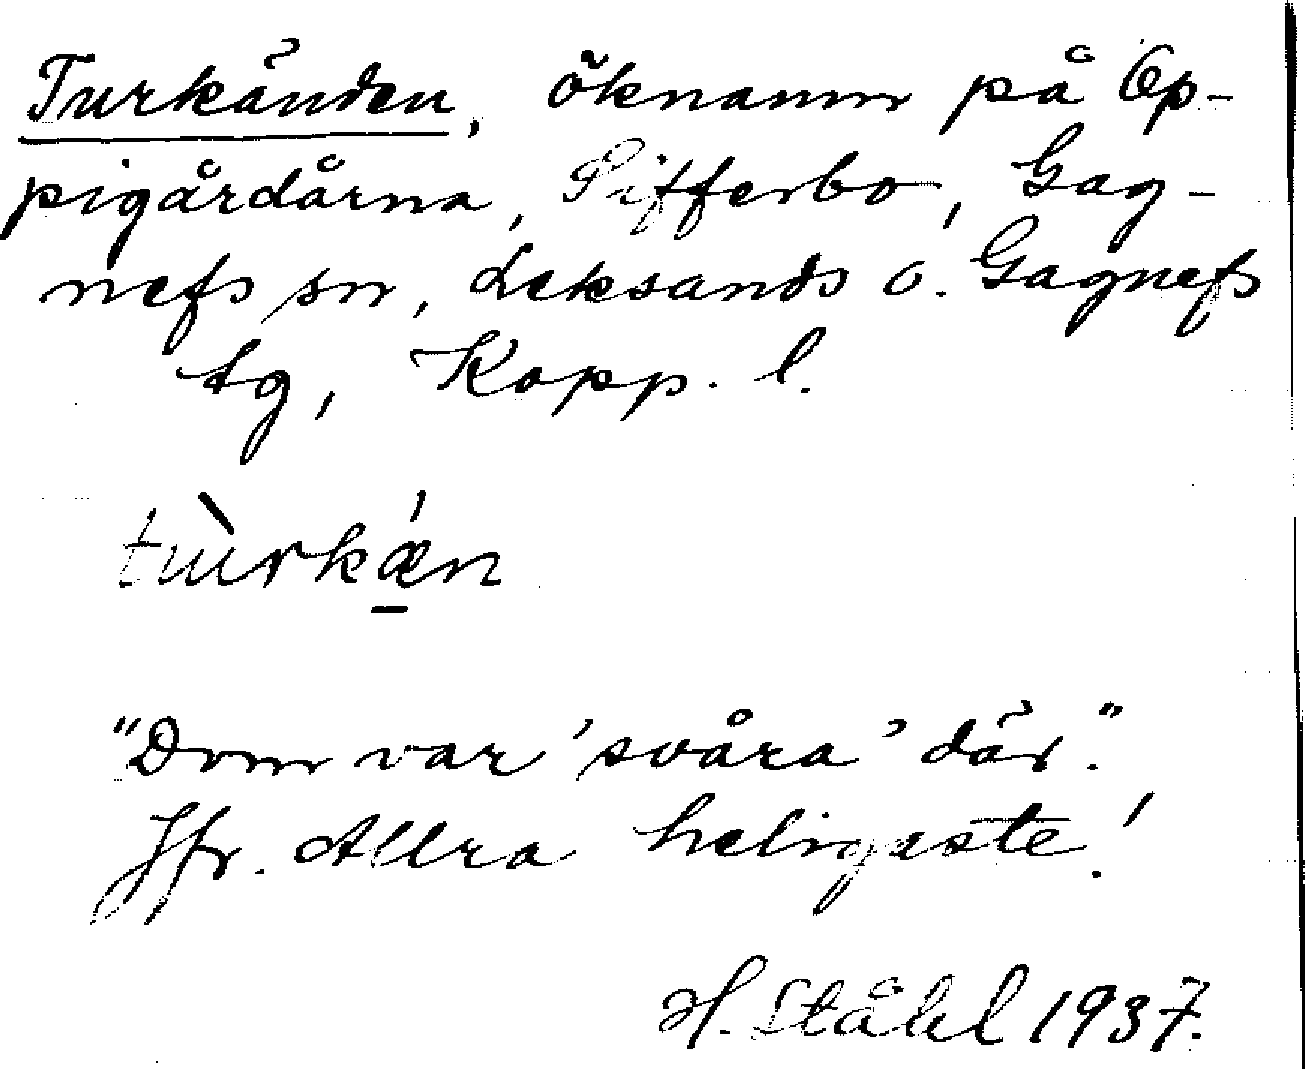 Turkänden, öknamn på Op-
pigårdårna, Sifferbo, Gag-
nefs sn, Leksands o. Gagnefs
tg, Kopp. l.
tùrkǽn
"Dom var 'svåra' där."
Jfr. Allra heligaste!
H. Ståhl 1937.